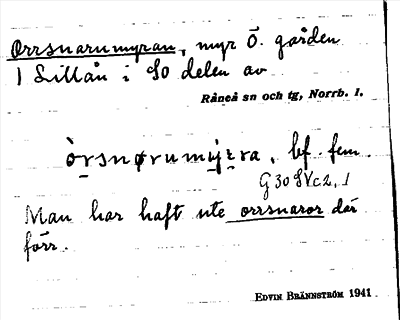 Orrsnarumyran, myr Ö. gården
1 Lillån i SO delen av
Råneå sn och tg, Norrb. l.
òrsnørumyʀra, bf. fem.
G 30 SVc2, 1
Man har haft ute orrsnaror där
förr.
Edvin Brännström 1941